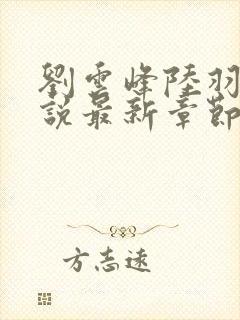 劉雲峰陸羽
說最新章節
方志遠